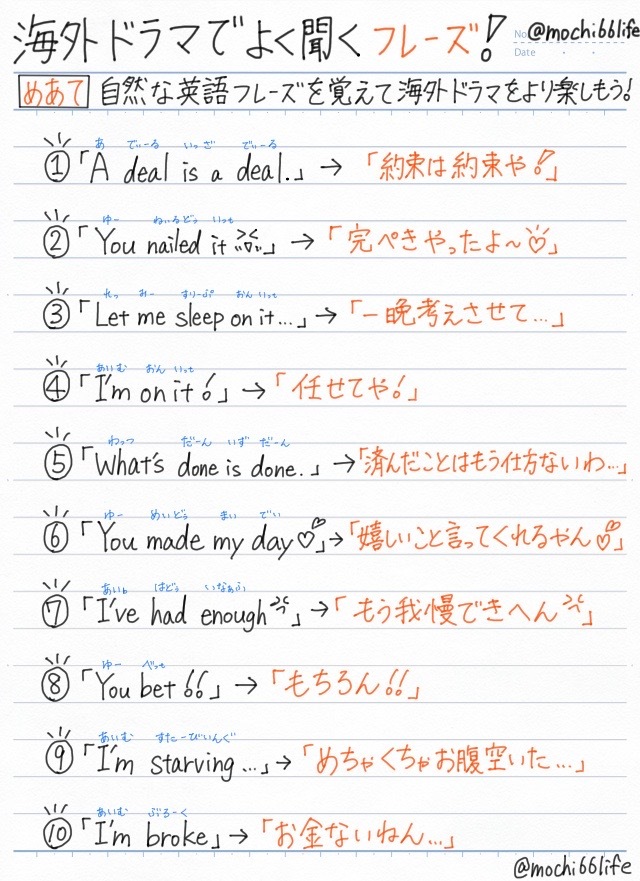 海外ドラマでよく聞くフレーズ!
No.
@mochi66life
Date
めあて 自然な英語フレーズを覚えて海外ドラマをより楽しもう!
あ でぃーる いっざ でぃーる
①「A deal is a deal.」→「約束は約束や!」
ゆー ねいるどぅ いっt
②「You nailed it」→「完ぺきやったよ〜♡」
れっ みー すりーぷ おん いっt
③「Let me sleep on it...」→「一晩考えさせて...」
あいむ おん いっt
④「I'm on it!」→「任せてや!」
わっつ だーん いず だーん
⑤「What's done is done.」→「済んだことはもう仕方ないわ...」
ゆー めいどぅ まい でい
⑥「You made my day♡」→「嬉しいこと言ってくれるやん♡」
はどぅ いなぁふ
⑦「I've had enough」→「もう我慢できへん」
ゆー べっt
⑧「You bet!!」→「もちろん!!」
あいむ すたーびいんぐ
⑨「I'm starving...」→「めちゃくちゃお腹空いた...」
あいむ ぶろーく
⑩「I'm broke」→「お金ないねん...」
@mochi66life